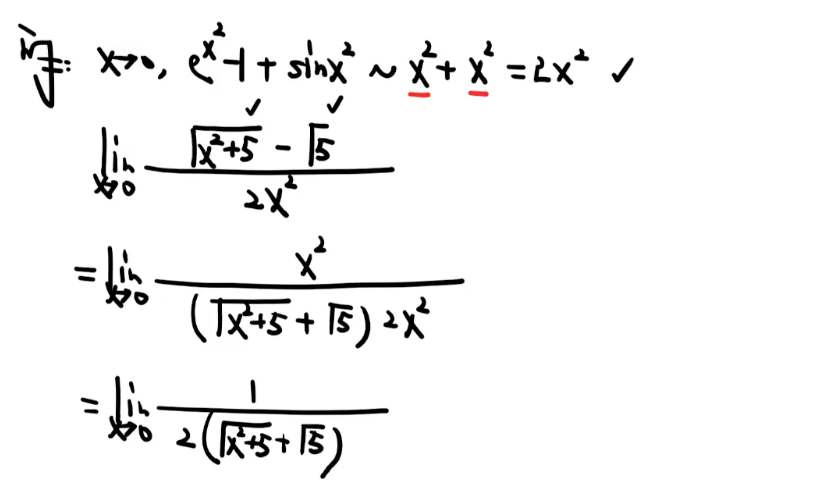 x→0, e^{x^2}-1+sinx^2 ~ x^2+x^2=2x^2 ✓
lim_{x→0} (√(x^2+5) - √5)/(2x^2)
=lim_{x→0} x^2/((√(x^2+5)+√5)2x^2)
=lim_{x→0} 1/(2(√(x^2+5)+√5))